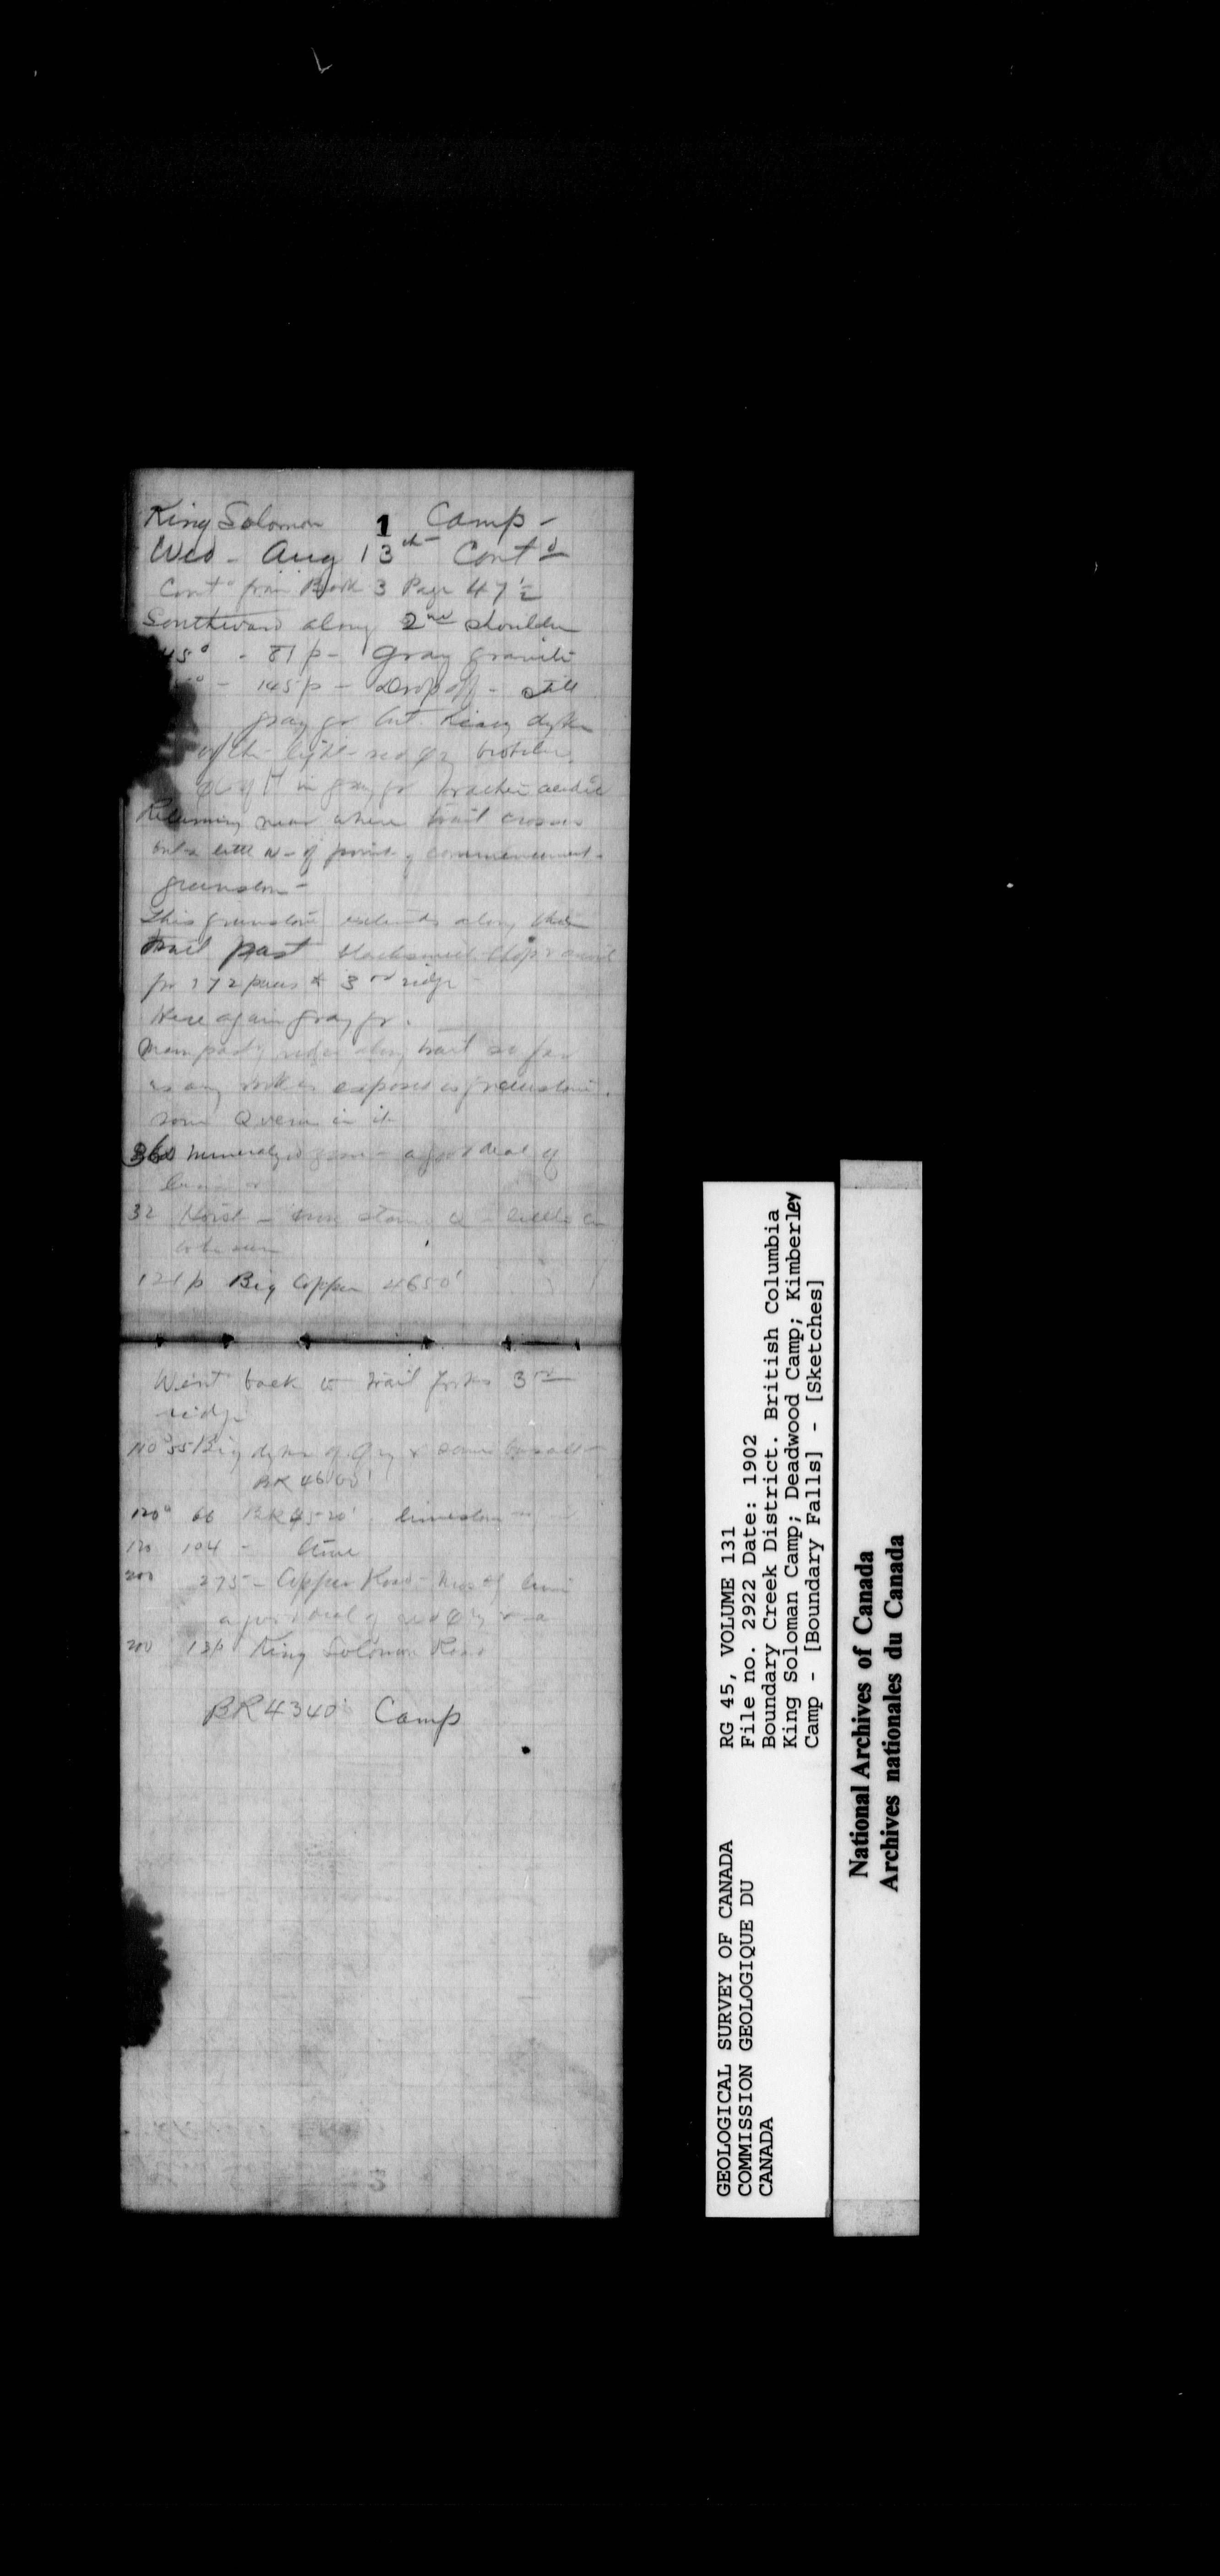 King Solomon 1 Camp -
Wed - Aug 13th Cont'd
Cont'd from Book 3 Page 47½
Southward along 2nd shoulder
45° - 81 p - Gray granite
- 145 p - Drop off - still
gray gr but
of the light red
in gray gr
Returning near where trail crosses
but a little N - of point of commencement -
greenstone -
This greenstone extends along the
trail past blacksmith shop
for 172 paces to 3rd ridge
Here again gray gr.
Main part ridge along trail so far
as any rock is exposed is greenstone.
some Q vein in it
360 Mineralized - a good deal of
32 Hoist - iron stain - little
to be seen
121 p Big Copper 4650'
Went back to trail forks 3rd
ridge
110° 55 Big dyke of & some basalt
BR 4600'
120° 66 BR 4520' limestone
120 104 - lime
200 275 - Copper Road - lime
a good deal of red
200 13 p King Solomon Road
BR 4340' Camp
GEOLOGICAL SURVEY OF CANADA
COMMISSION GEOLOGIQUE DU
CANADA
RG 45, VOLUME 131
File no. 2922 Date: 1902
Boundary Creek District. British Columbia
King Soloman Camp; Deadwood Camp; Kimberley
Camp - [Boundary Falls] - [Sketches]
National Archives of Canada
Archives nationales du Canada